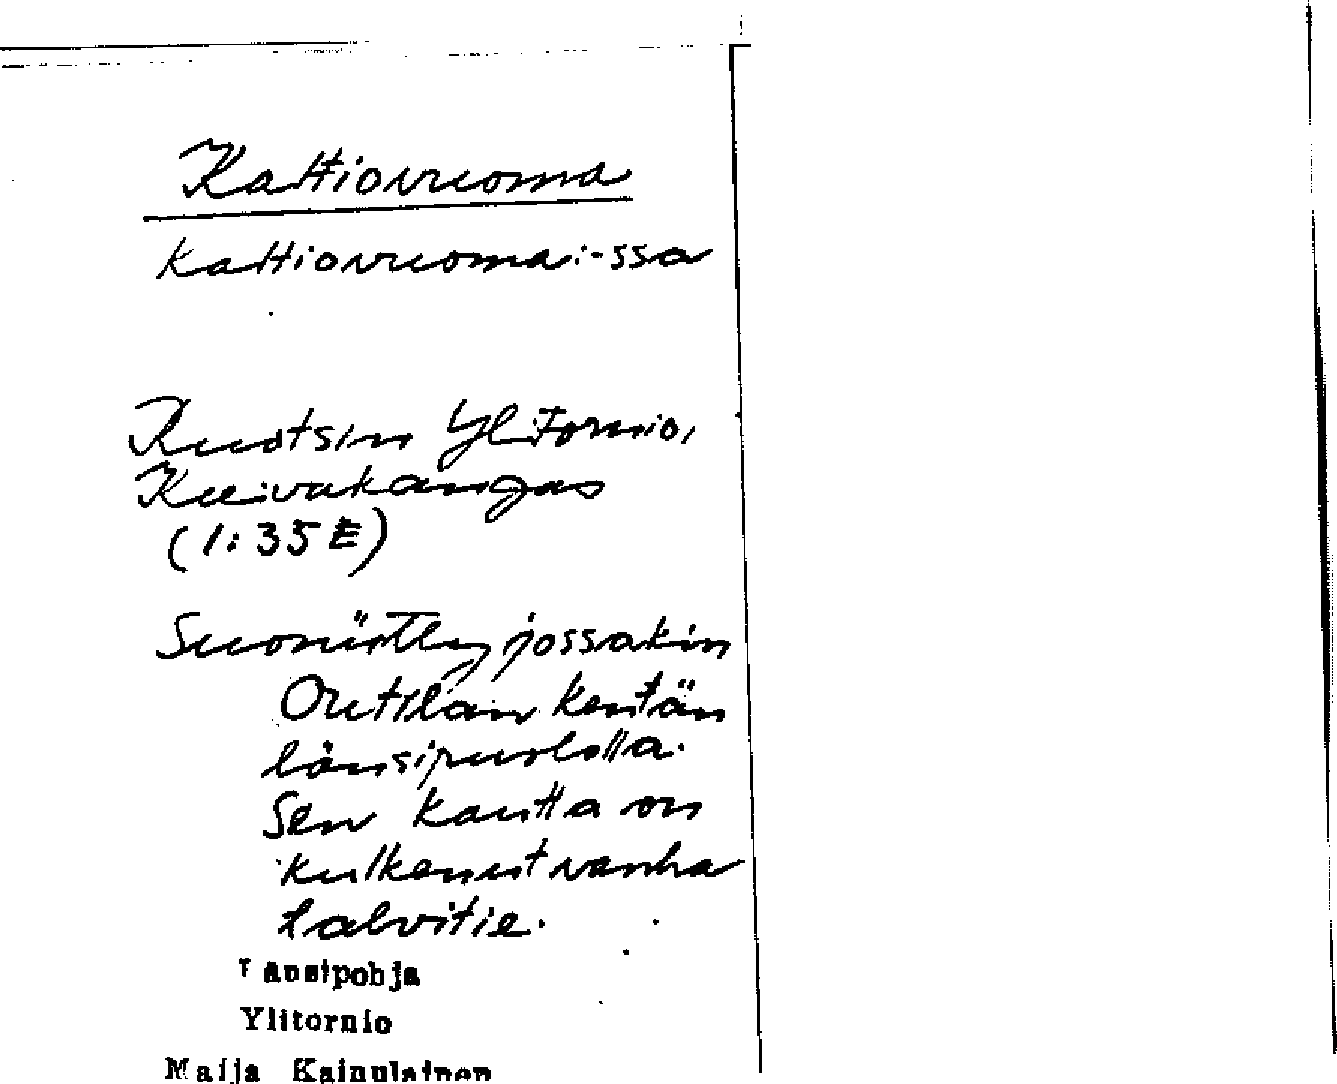 Kattiovuoma
Kattiovuoma:-ssa
Ruotsin Ylitornio,
Kuivakangas
(1:35 E)
Suoniitty jossakin
Outilan kentän
länsipuolella.
Sen kautta on
kulkenut vanha
talvitie.
Länsipohja
Ylitornio
Maija Kainulainen